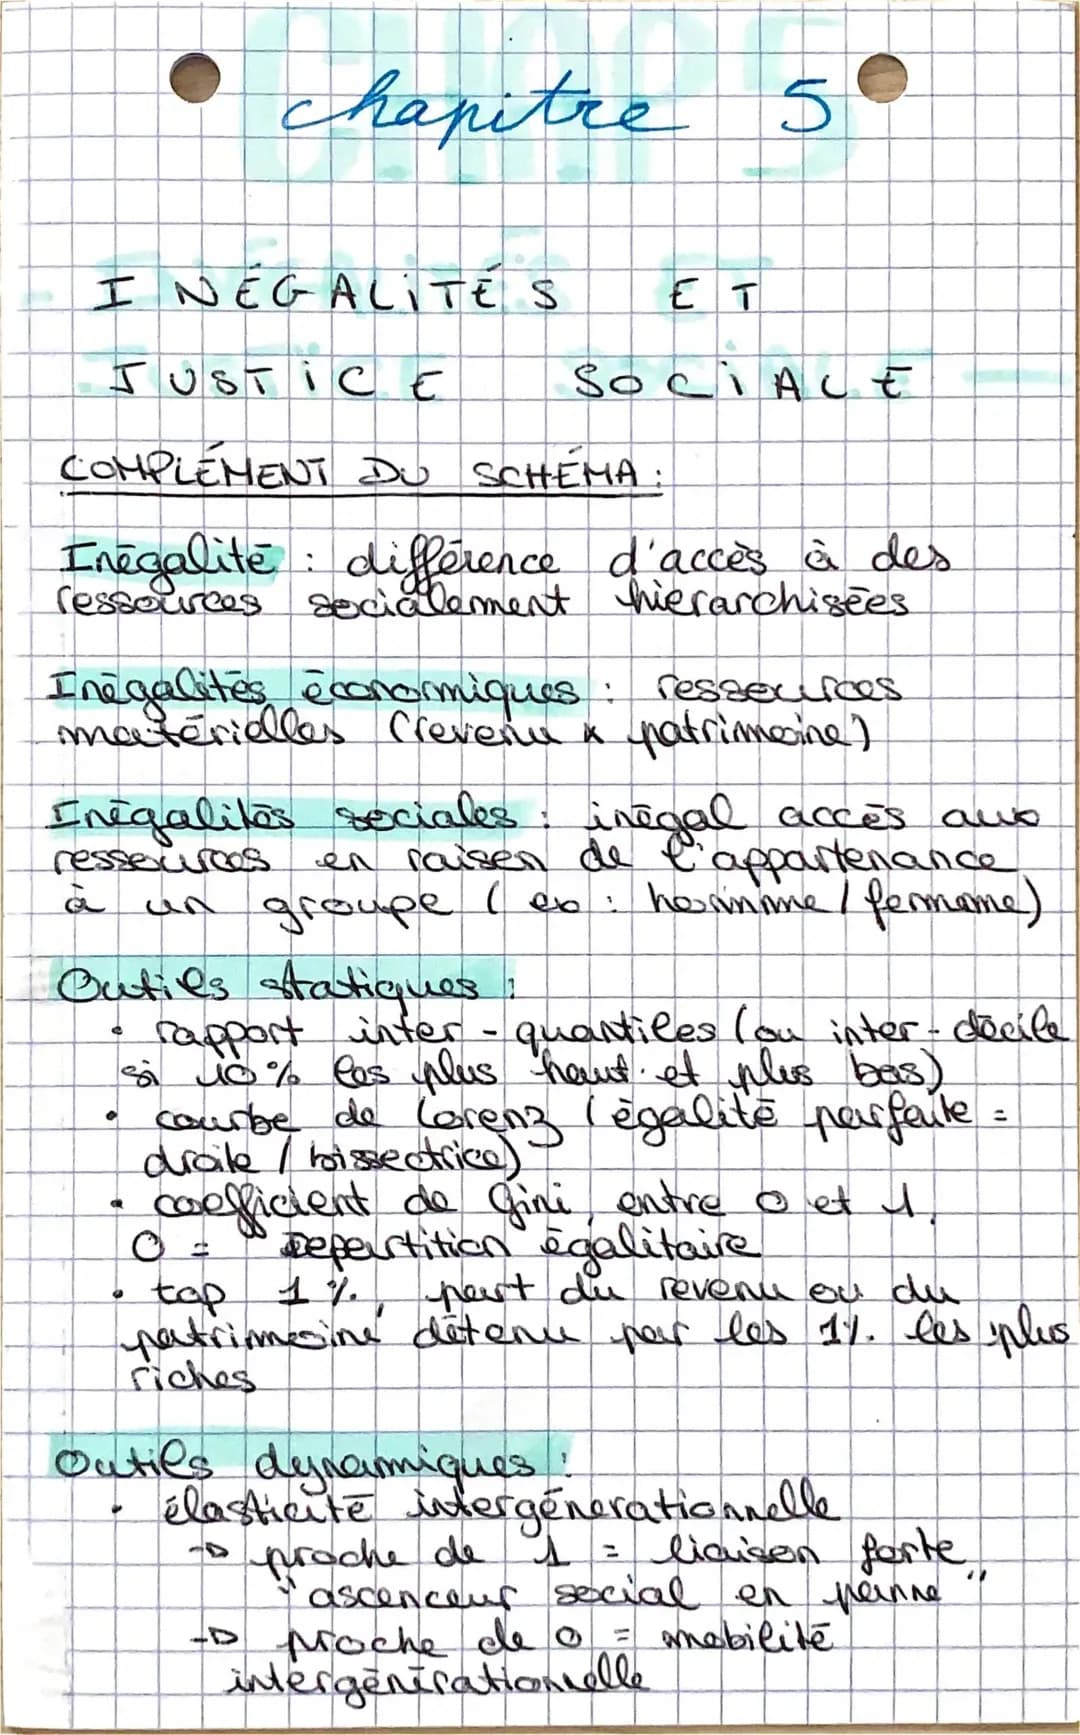 chapitre 5
INÉGALITÉS ET
JUSTICE SOCIALE
COMPLÉMENT DU SCHÉMA :
Inégalité : différence d'accès à des
ressources socialement hierarchisées
Inégalités économiques : ressources
matérielles (revenu x patrimoine)
Inégalités sociales : inégal accès aux
ressources en raison de l'appartenance
à un groupe (ex : homme / femme)
Outils statiques :
• rapport inter-quantiles (ou inter-décile
si 10% les plus haut et plus bas)
• courbe de Lorenz (égalité parfaite =
droite / bissectrice)
• coefficient de Gini, entre 0 et 1,
0 = Repartition égalitaire
• top 1%, part du revenu ou du
patrimoine détenu par les 1% les plus
riches
Outils dynamiques :
• élasticité intergénerationnelle
→ proche de 1 = liaison forte
"ascenceur social en panne"
→ proche de 0 = mobilité
intergénérationnelle